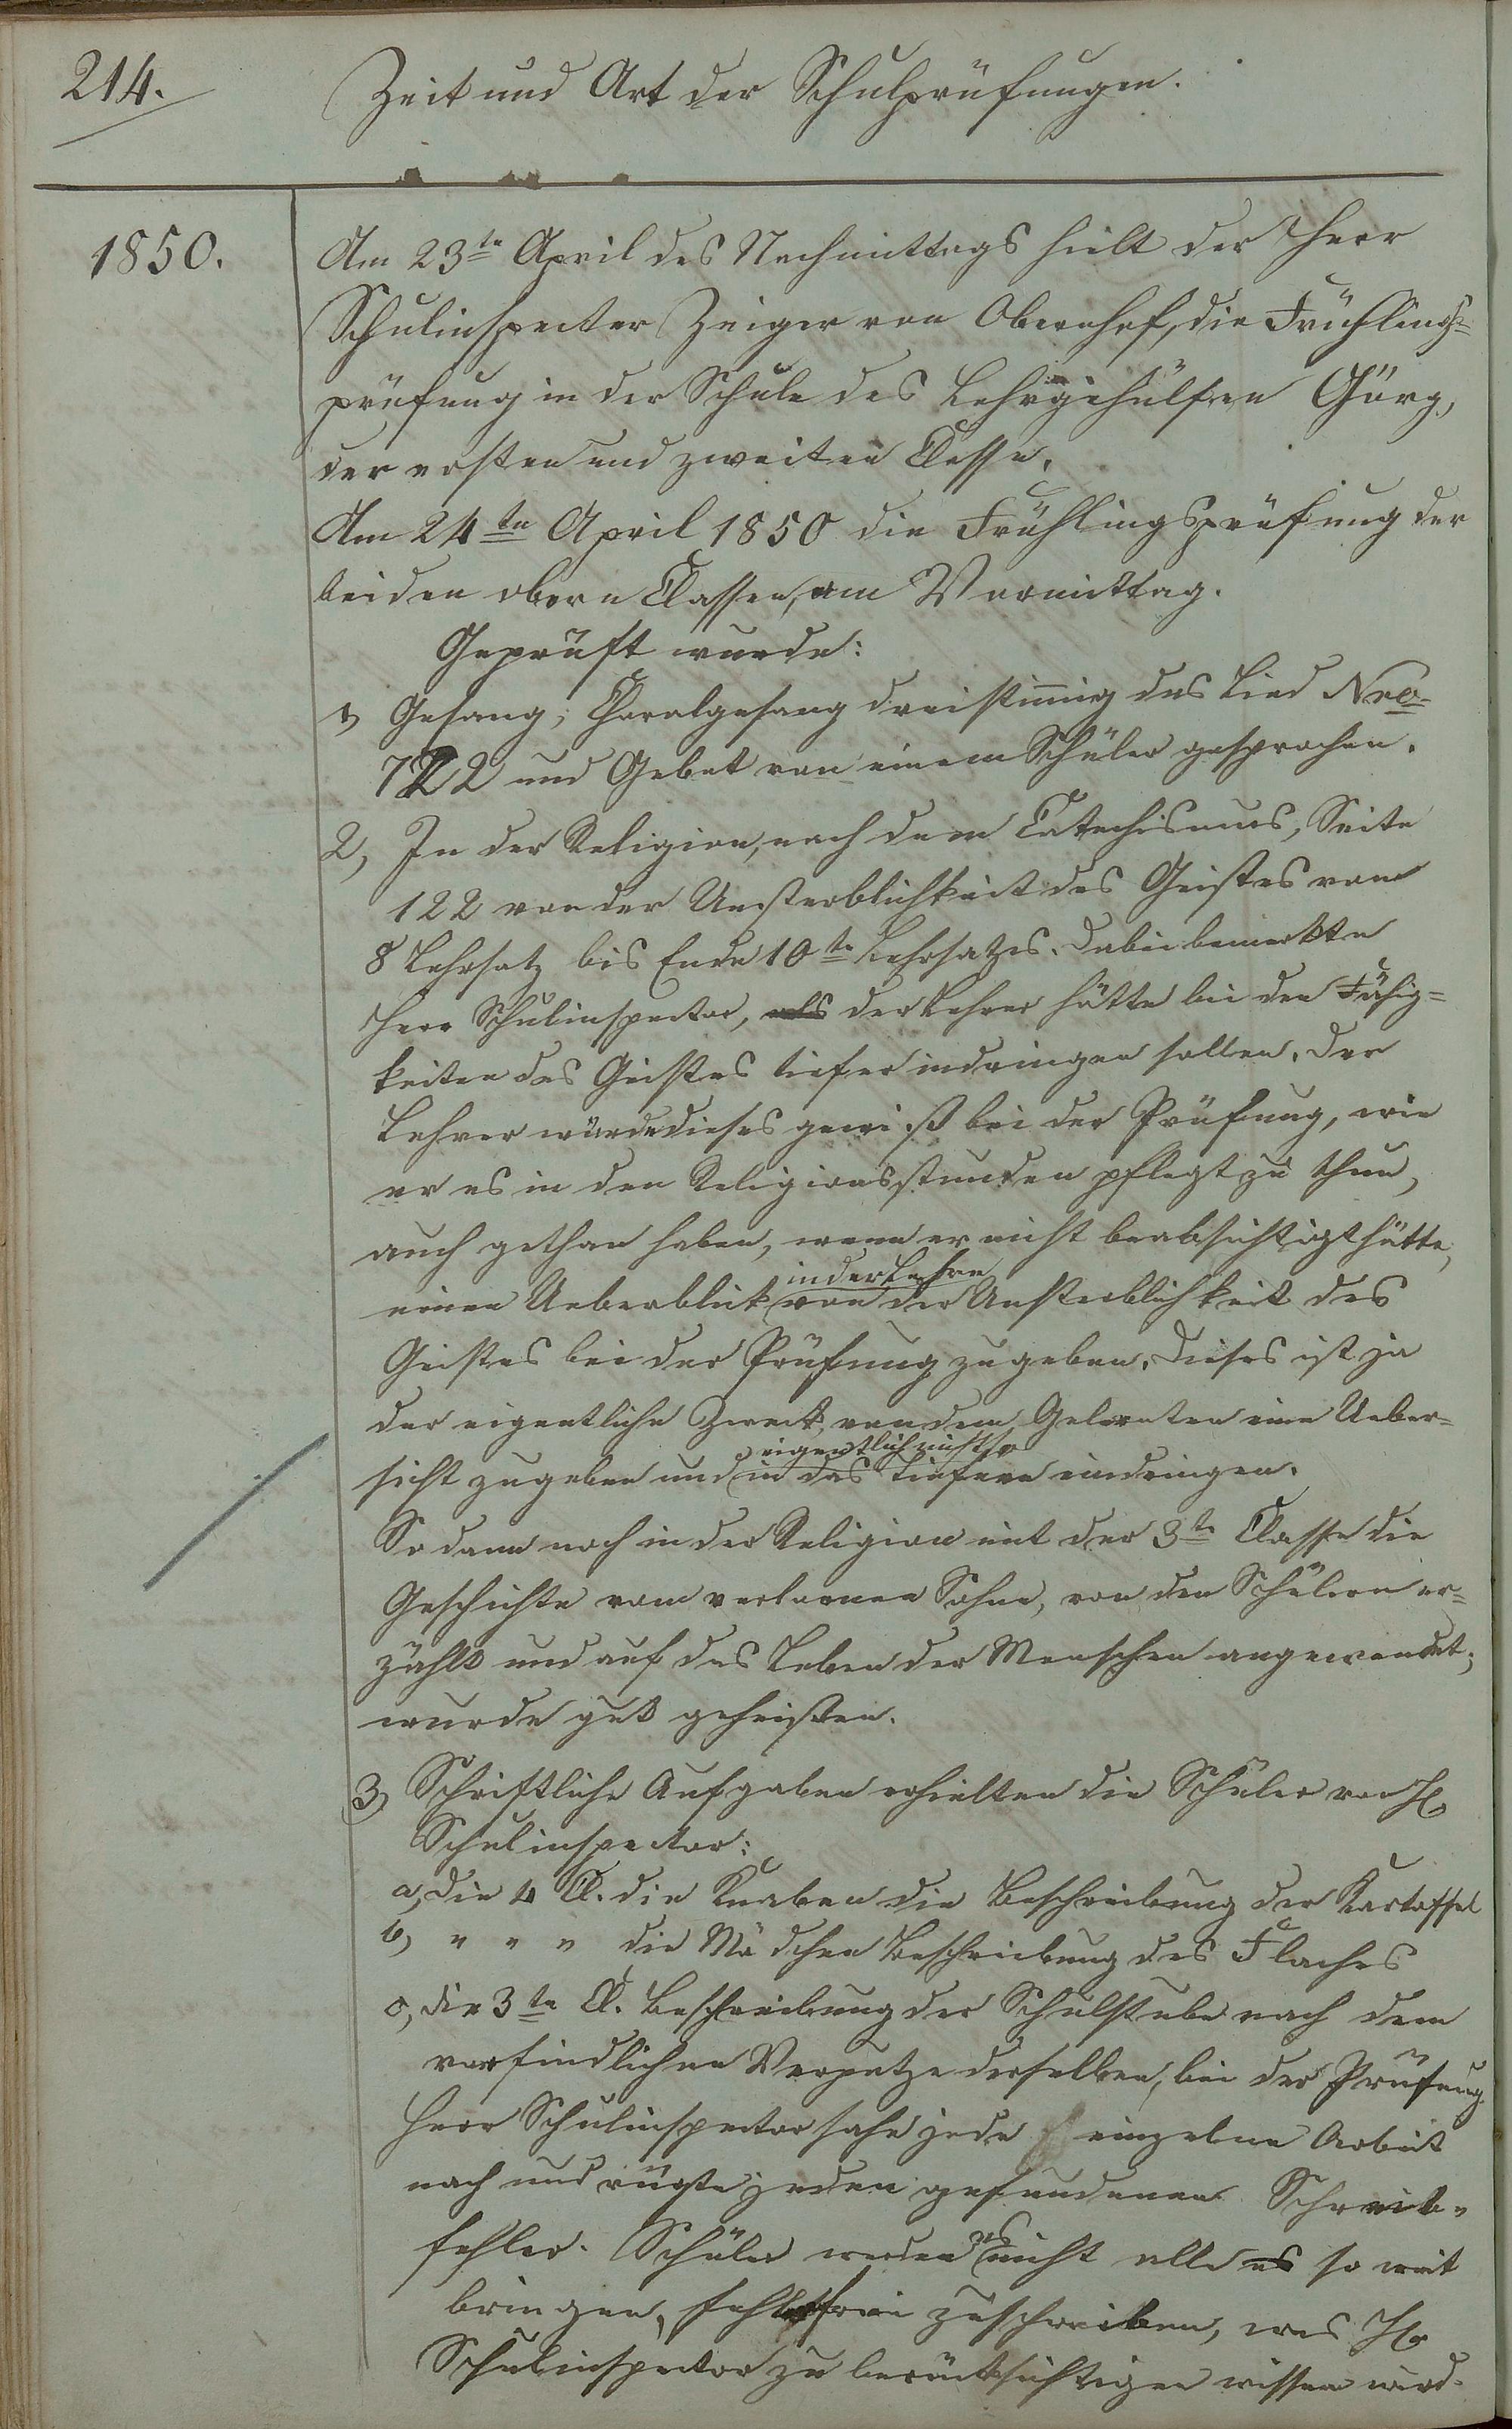 214.
Zeit und Art der Schulprüfungen.
1850.
Am 23te April des Nachmittags hielt der Herr
Schulinspecter Zeiger von Obernhof, die Frühlings=
prüfung in der Schule des Lehrgehülfen Görg,
der ersten und zweiten Classe.
Am 24te April 1850 die Frühlingsprüfung der
beiden obern Classen, am Vormittag.
Geprüft wurde:
1) Gesang; Choralgesang dreistimig das Lied Nro
722 und Gebet von einem Schüler gesprochen.
2, In der Religion, nach dem Catechismus, Seite
122 von der Unsterblichkeit des Geistes vom
8 Lehrsatz bis Ende 10te Lehrsatzes. Dabei bemerkte
Herr Schulinspector, als der Lehrer hätte bei den Fähig=
keiten des Geistes tiefer indringen sollen. Der
Lehrer würde dieses gewiß bei der Prüfung, wie
er es in den Religionsstunden pflegt zu thun,
auch gethan haben, wenn er nicht beabsichtigt hätte,
in der Lehre
einen Ueberblick von der Unsterblichkeit des
Geistes bei der Prüfung zu geben. Dieses ist ja
der eigentliche Zweck, von dem Gelernten eine Ueber=
eigentlich nicht so
sicht zugeben und in das Tiefere eindringen.
So dann noch in der Religion mit der 3te Classe die
Geschichte vom verlornen Sohne, von den Schülern er=
zählt und auf das Leben der Menschen angewendet;
wurde gut geheißen.
3) Schriftliche Aufgaben erhielten die Schüler von H.
Schulinspector:
a, die 4 Cl. die Knaben die Beschreibung der Kartoffel
b, " " " die Mädchen Beschreibung des Flaches
c, die 3te Cl. Beschreibung der Schulstube nach dem
vorfindlichen Verputze derselben, bei der Prüfung
Herr Schulinspector sahe jede einzelne Arbeit
nach und rügte jeden gefundenen Schreib=
es
fehler. Schüler werden nicht alle es so weit
bringen, fehlerfrei zuschreiben, was Hr
Schulinspector zu berücksichtigen wissen wird.